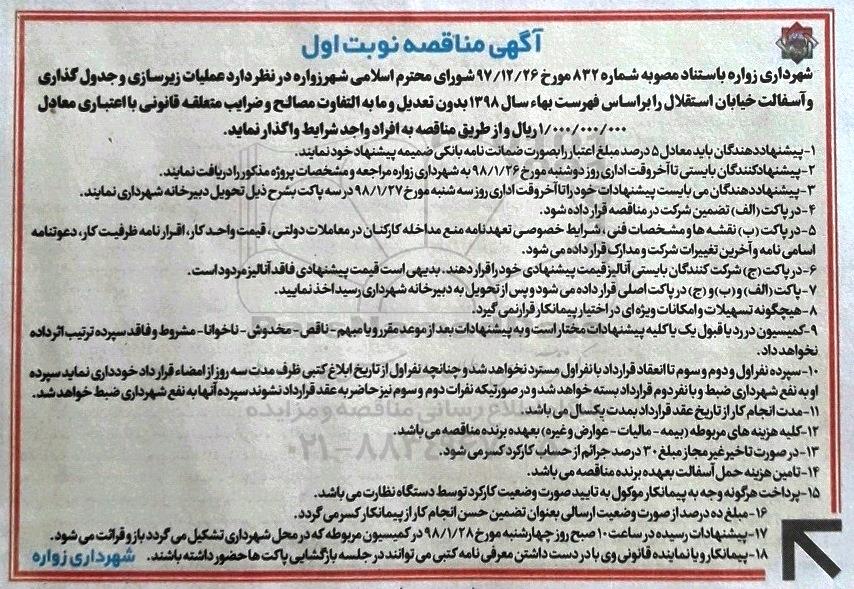 آگهی مناقصه نوبت اول
شهرداری زواره باستناد مصوبه شماره ۸۳۲ مورخ ۹۷/۱۲/۲۶ شورای محترم اسلامی شهر زواره در نظر دارد عملیات زیرسازی و جدول گذاری
و آسفالت خیابان استقلال را براساس فهرست بهاء سال ۱۳۹۸ بدون تعدیل و ما به التفاوت مصالح و ضرایب متعلقه قانونی با اعتباری معادل
۱/۰۰۰/۰۰۰/۰۰۰ ریال و از طریق مناقصه به افراد واجد شرایط واگذار نماید.
۱-پیشنهاددهندگان باید معادل ۵ درصد مبلغ اعتبار را بصورت ضمانت نامه بانکی ضمیمه پیشنهاد خود نمایند.
۲-پیشنهادکنندگان بایستی تا آخر وقت اداری روز دوشنبه مورخ ۹۸/۱/۲۶ به شهرداری زواره مراجعه و مشخصات پروژه مذکور را دریافت نمایند.
۳-پیشنهاددهندگان می بایست پیشنهادات خود را تا آخر وقت اداری روز سه شنبه مورخ ۹۸/۱/۲۷ در سه پاکت بشرح ذیل تحویل دبیرخانه شهرداری نمایند.
۴-در پاکت (الف) تضمین شرکت در مناقصه قرار داده شود.
۵-در پاکت (ب) نقشه ها و مشخصات فنی، شرایط خصوصی تعهدنامه منع مداخله کارکنان در معاملات دولتی، قیمت واحد کار، اقرار نامه ظرفیت کار، دعوتنامه
اسامی نامه و آخرین تغییرات شرکت و مدارک قرار داده می شود.
۶-در پاکت (ج) شرکت کنندگان بایستی آنالیز قیمت پیشنهادی خود را قرار دهند. بدیهی است قیمت پیشنهادی فاقد آنالیز مردود است.
۷-پاکت (الف) و(ب) و (ج) در پاکت اصلی قرار داده می شود و پس از تحویل به دبیرخانه شهرداری رسید اخذ نمایید.
۸-هیچگونه تسهیلات و امکانات ویژه ای در اختیار پیمانکار قرار نمی گیرد.
۹-کمیسیون در رد یا قبول یک یا کلیه پیشنهادات مختار است و به پیشنهادات بعد از موعد مقرر و یا مبهم - ناقص - مخدوش - ناخوانا - مشروط و فاقد سپرده ترتیب اثر داده
نخواهد داد.
۱۰-سپرده نفر اول و دوم و سوم تا انعقاد قرارداد با نفر اول مسترد نخواهد شد و چنانچه نفر اول از تاریخ ابلاغ کتبی ظرف مدت سه روز از امضاء قرارداد خودداری نماید سپرده
او به نفع شهرداری ضبط و با نفر دوم قرارداد بسته خواهد شد و در صورتیکه نفرات دوم و سوم نیز حاضر به عقد قرارداد نشوند سپرده آنها به نفع شهرداری ضبط خواهد شد.
۱۱-مدت انجام کار از تاریخ عقد قرارداد بمدت یکسال می باشد.
۱۲-کلیه هزینه های مربوطه (بیمه - مالیات - عوارض و غیره) بعهده برنده مناقصه می باشد.
۱۳-در صورت تاخیر غیر مجاز مبلغ ۳۰ درصد جرائم از حساب کارکرد کسر می شود.
۱۴-تامین هزینه حمل آسفالت بعهده برنده مناقصه می باشد.
۱۵-پرداخت هرگونه وجه به پیمانکار موکول به تایید صورت وضعیت کارکرد توسط دستگاه نظارت می باشد.
۱۶-مبلغ ده درصد از صورت وضعیت ارسالی بعنوان تضمین حسن انجام کار از پیمانکار کسر می گردد.
۱۷-پیشنهادات رسیده در ساعت ۱۰ صبح روز چهارشنبه مورخ ۹۸/۱/۲۸ در کمیسیون مربوطه که در محل شهرداری تشکیل می گردد باز و قرائت می شود.
۱۸-پیمانکار و یا نماینده قانونی وی با در دست داشتن معرفی نامه کتبی می توانند در جلسه بازگشایی پاکت ها حضور داشته باشند.
شهرداری زواره